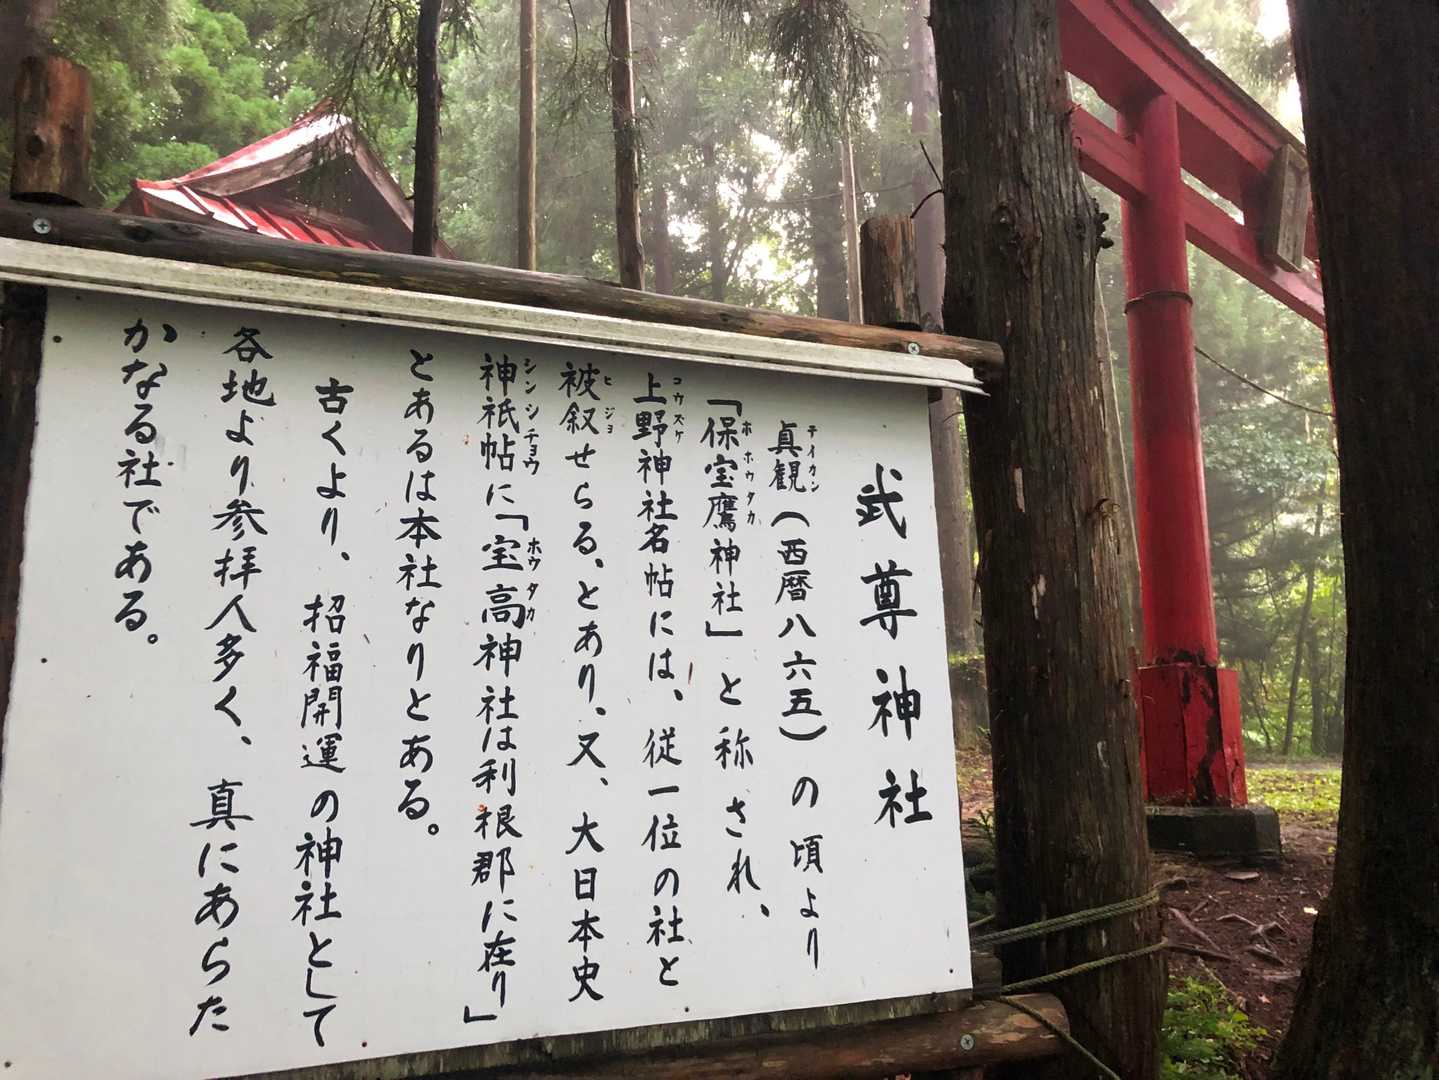 武尊神社
貞観(西暦八六五)の頃より
「保宝鷹神社」と称され、
上野神社名帖には、従一位の社と
被叙せらる、とあり、又、大日本史
神祇帖に「宝高神社は利根郡に在り」
とあるは本社なりとある。
古くより、招福開運の神社として
各地より参拝人多く、真にあらた
かなる社である。
テイカン
ホホウタカ
コウズケ
ヒジョ
シンシチョウ
ホウタカ